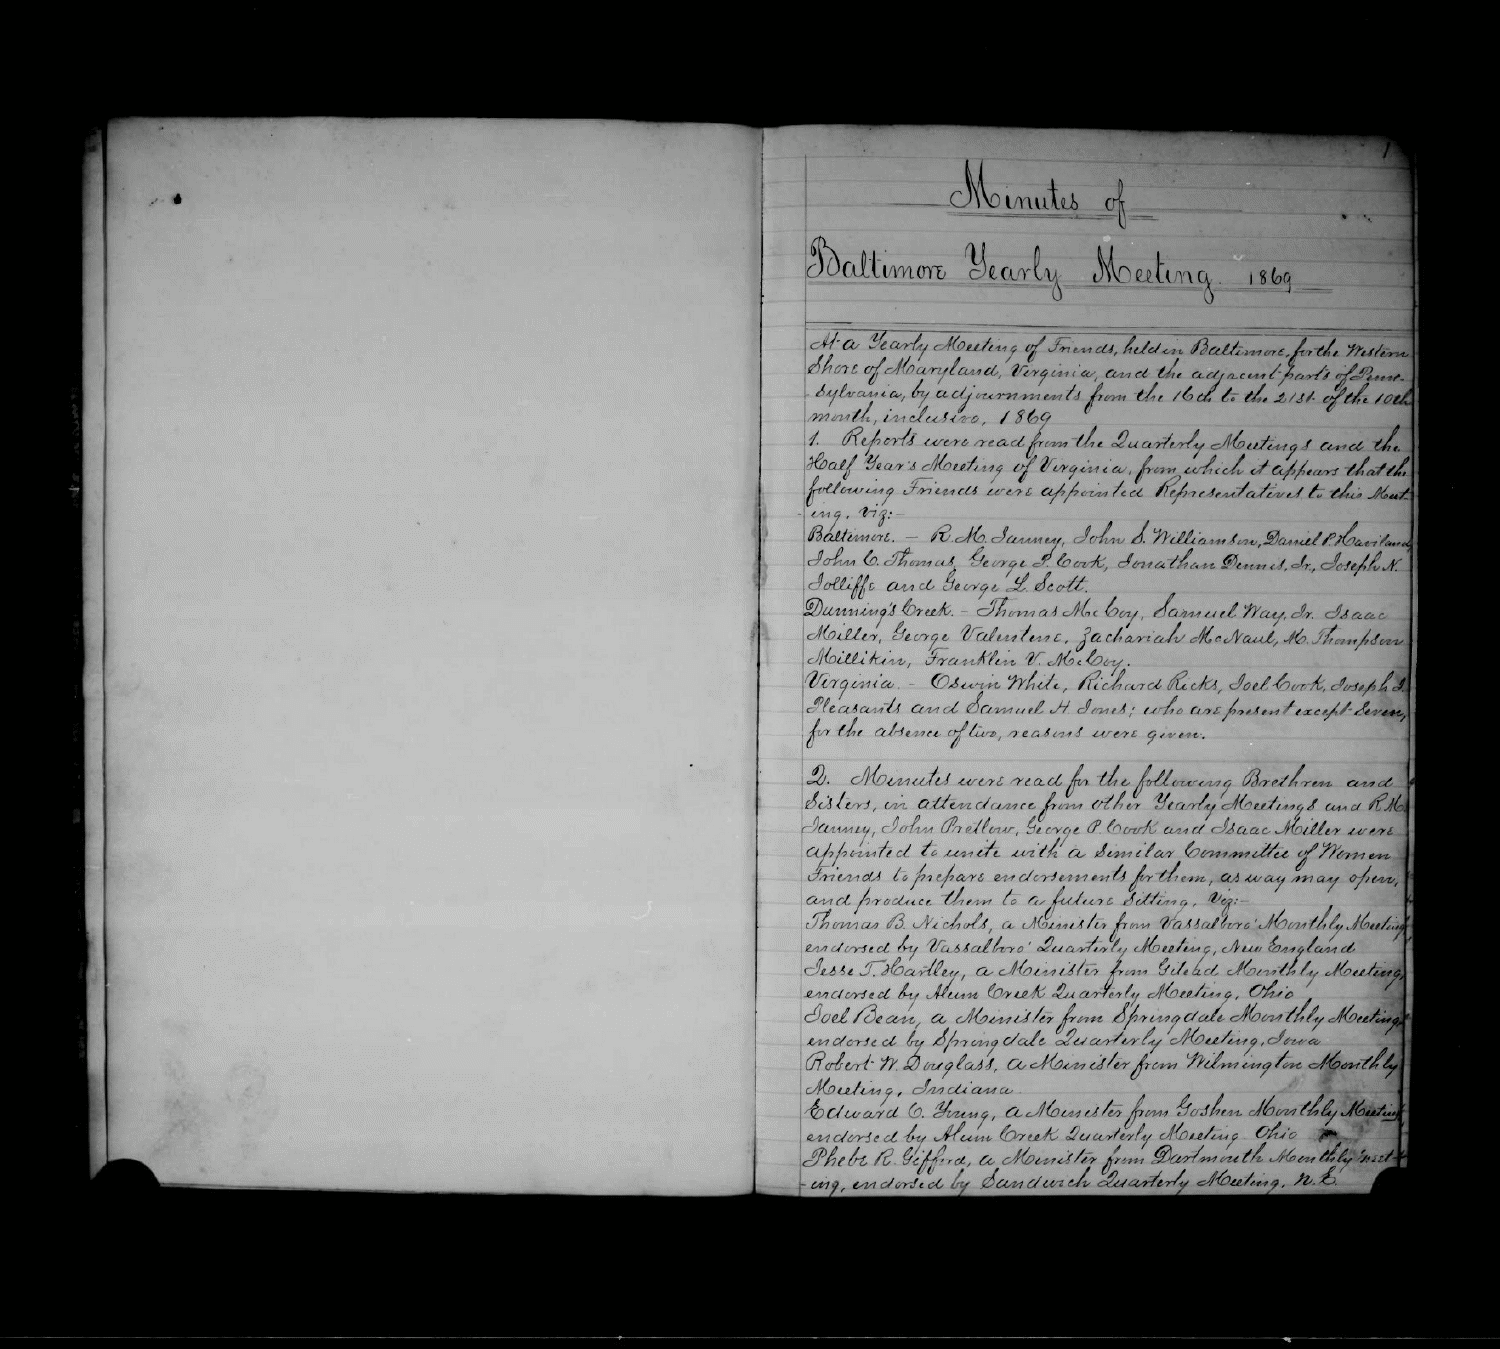 1
Minutes of
Baltimore Yearly Meeting. 1869
At a Yearly Meeting of Friends, held in Baltimore, for the Western
Shore of Maryland, Virginia, and the adjacent parts of Penn-
sylvania, by adjournments from the 16th to the 21st of the 10th
month, inclusive, 1869
1. Reports were read from the Quarterly Meetings and the
Half Year's Meeting of Virginia, from which it appears that the
following Friends were appointed Representatives to this Meet-
-ing, viz:-
Baltimore. - R. M. Janney, John S. Williamson, Daniel P. Haviland,
John C. Thomas, George P. Cook, Jonathan Dennis, Jr., Joseph N.
Jolliffe and George L. Scott.
Dunning's Creek. - Thomas McCoy, Samuel Way, Jr. Isaac
Miller, George Valentine, Zachariah McNaul, M. Thompson
Millikin, Franklin V. McCoy.
Virginia. - Oswin White, Richard Ricks, Joel Cook, Joseph J.
Pleasants and Samuel H Jones; who are present except Seven,
for the absence of two, reasons were given.
2. Minutes were read for the following Brethren and
Sisters, in attendance from other Yearly Meetings and R. M.
Janney, John Pretlow, George P. Cook and Isaac Miller were
appointed to unite with a Similar Committee of Women
Friends to prepare endorsements for them, as way may open,
and produce them to a future Sitting, Viz:-
Thomas B. Nichols, a Minister from Vassalboro' Monthly Meeting,
endorsed by Vassalboro' Quarterly Meeting, New England
Jesse T. Hartley, a Minister from Gilead Monthly Meeting,
endorsed by Alum Creek Quarterly Meeting, Ohio
Joel Bean, a Minister from Springdale Monthly Meeting
endorsed by Springdale Quarterly Meeting, Iowa
Robert W. Douglass, a Minister from Wilmington Monthly
Meeting, Indiana
Edward C. Young, a Minister from Goshen Monthly Meeting,
endorsed by Alum Creek Quarterly Meeting Ohio
Phebe R. Gifford, a Minister from Dartmouth Monthly Meet-
-ing, endorsed by Sandwich Quarterly Meeting, N. E.